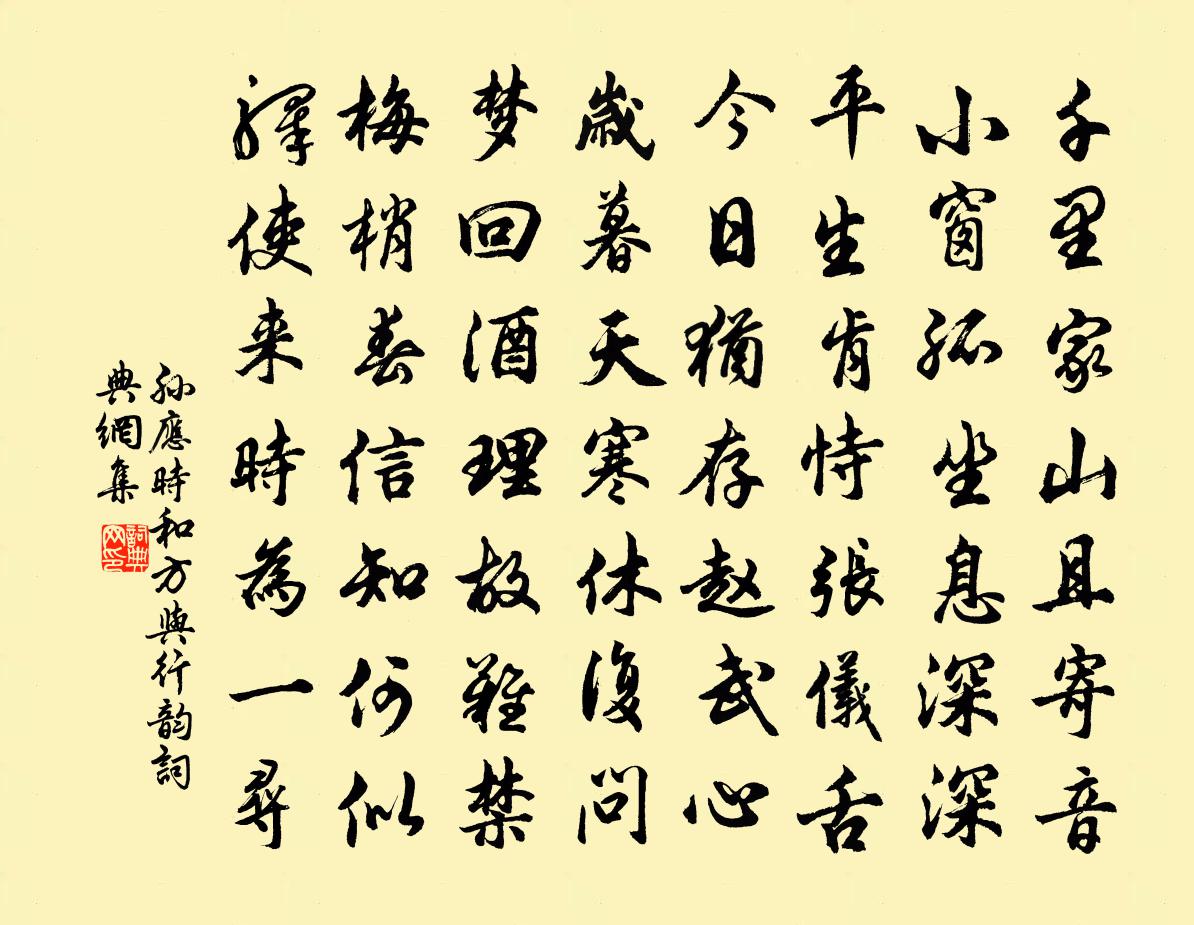 千里家山且寄音
小窗孤坐息深深
平生肯恃張儀舌
今日猶存赵武心
歲暮天寒休復问
梦回酒理故難禁
梅梢春信知何似
驛使来時為一尋
孙應時和方與行韵詞
典網集
詞典网印